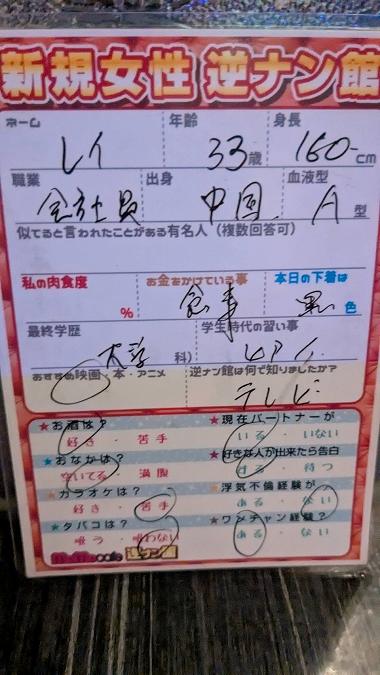 新規女性 逆ナン館
ネーム 年齢 身長
レイ 33歳 160cm
職業 出身 血液型
会社員 中国 A型
似てると言われたことがある有名人(複数回答可)
私の肉食度 お金をかけている事 本日の下着は
% 食事 黒色
最終学歴 学生時代の習い事
大学 科) ピアノ
おすすめ映画・本・アニメ 逆ナン館は何で知りましたか?
テレビ
★お酒は? ★現在パートナーが
好き・苦手 いる・いない
★おなかは? ★好きな人が出来たら告白
空いてる・満腹 する・待つ
★カラオケは? ★浮気不倫経験が
好き・苦手 ある・ない
★タバコは? ★ワンチャン経験?
吸う・吸わない ある・ない
cafe 逆ナン館